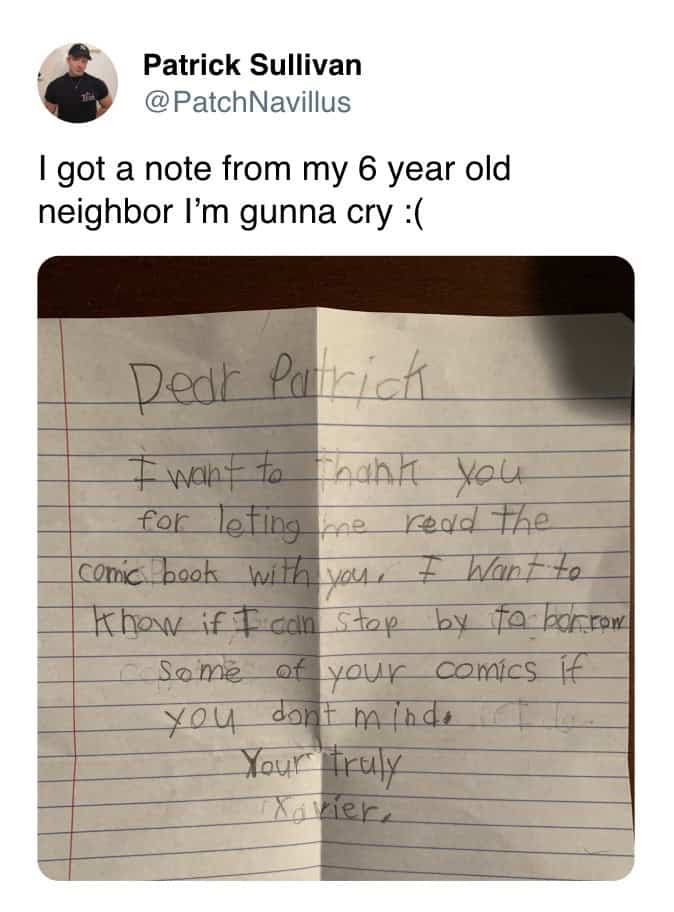 Patrick Sullivan
@PatchNavillus
I got a note from my 6 year old
neighbor I’m gunna cry :(
Dear Patrick
I want to thank you
for leting me read the
comic book with you. I Want to
know if I can stop by to borrow
Some of your comics if
you dont mind.
Your truly
Xavier.